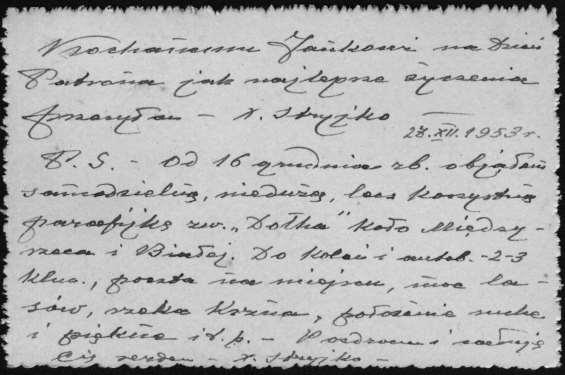 Kochanemu Jankowi na Dzień
Patrona jak najlepsze życzenia
przesyłam – x. Stryjko
28.XII.1953 r.
P.S. – Od 16 grudnia rb. objąłem
samodzielną, niedużą, lecz korzystną
parafijkę zw. „Dołha" koło Między-
rzeca i Białej. Do kolei i autob. – 2-3
klm., poczta na miejscu, moc la-
sów, rzeka Krzna, położenie suche
i piękne i t.p. – Pozdrowi i całuję
Cię serdem – x. Stryjko –